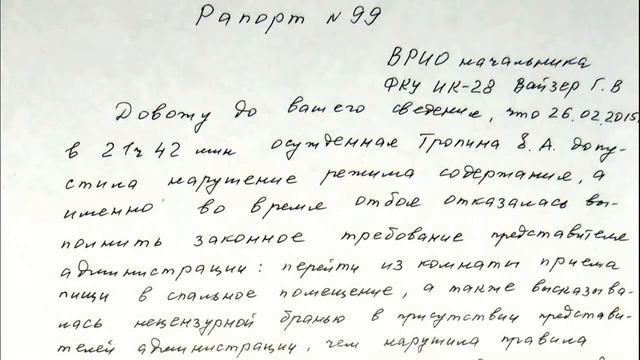 Рапорт №99
ВРИО начальника
ФКУ ИК-28 Вайзер Г.В
Довожу до вашего сведение, что 26.02.2015.
в 21ч 42 мин осужденная Тропина Е.А. допу-
стила нарушение режима содержания, а
именно во время отбоя отказалась вы-
полнить законное требование представителе
администрации: перейти из комнаты приема
пищи в спальное помещение, а также высказыва-
лась нецензурной бранью в присутствии представи-
телей администрации, чем нарушила правила